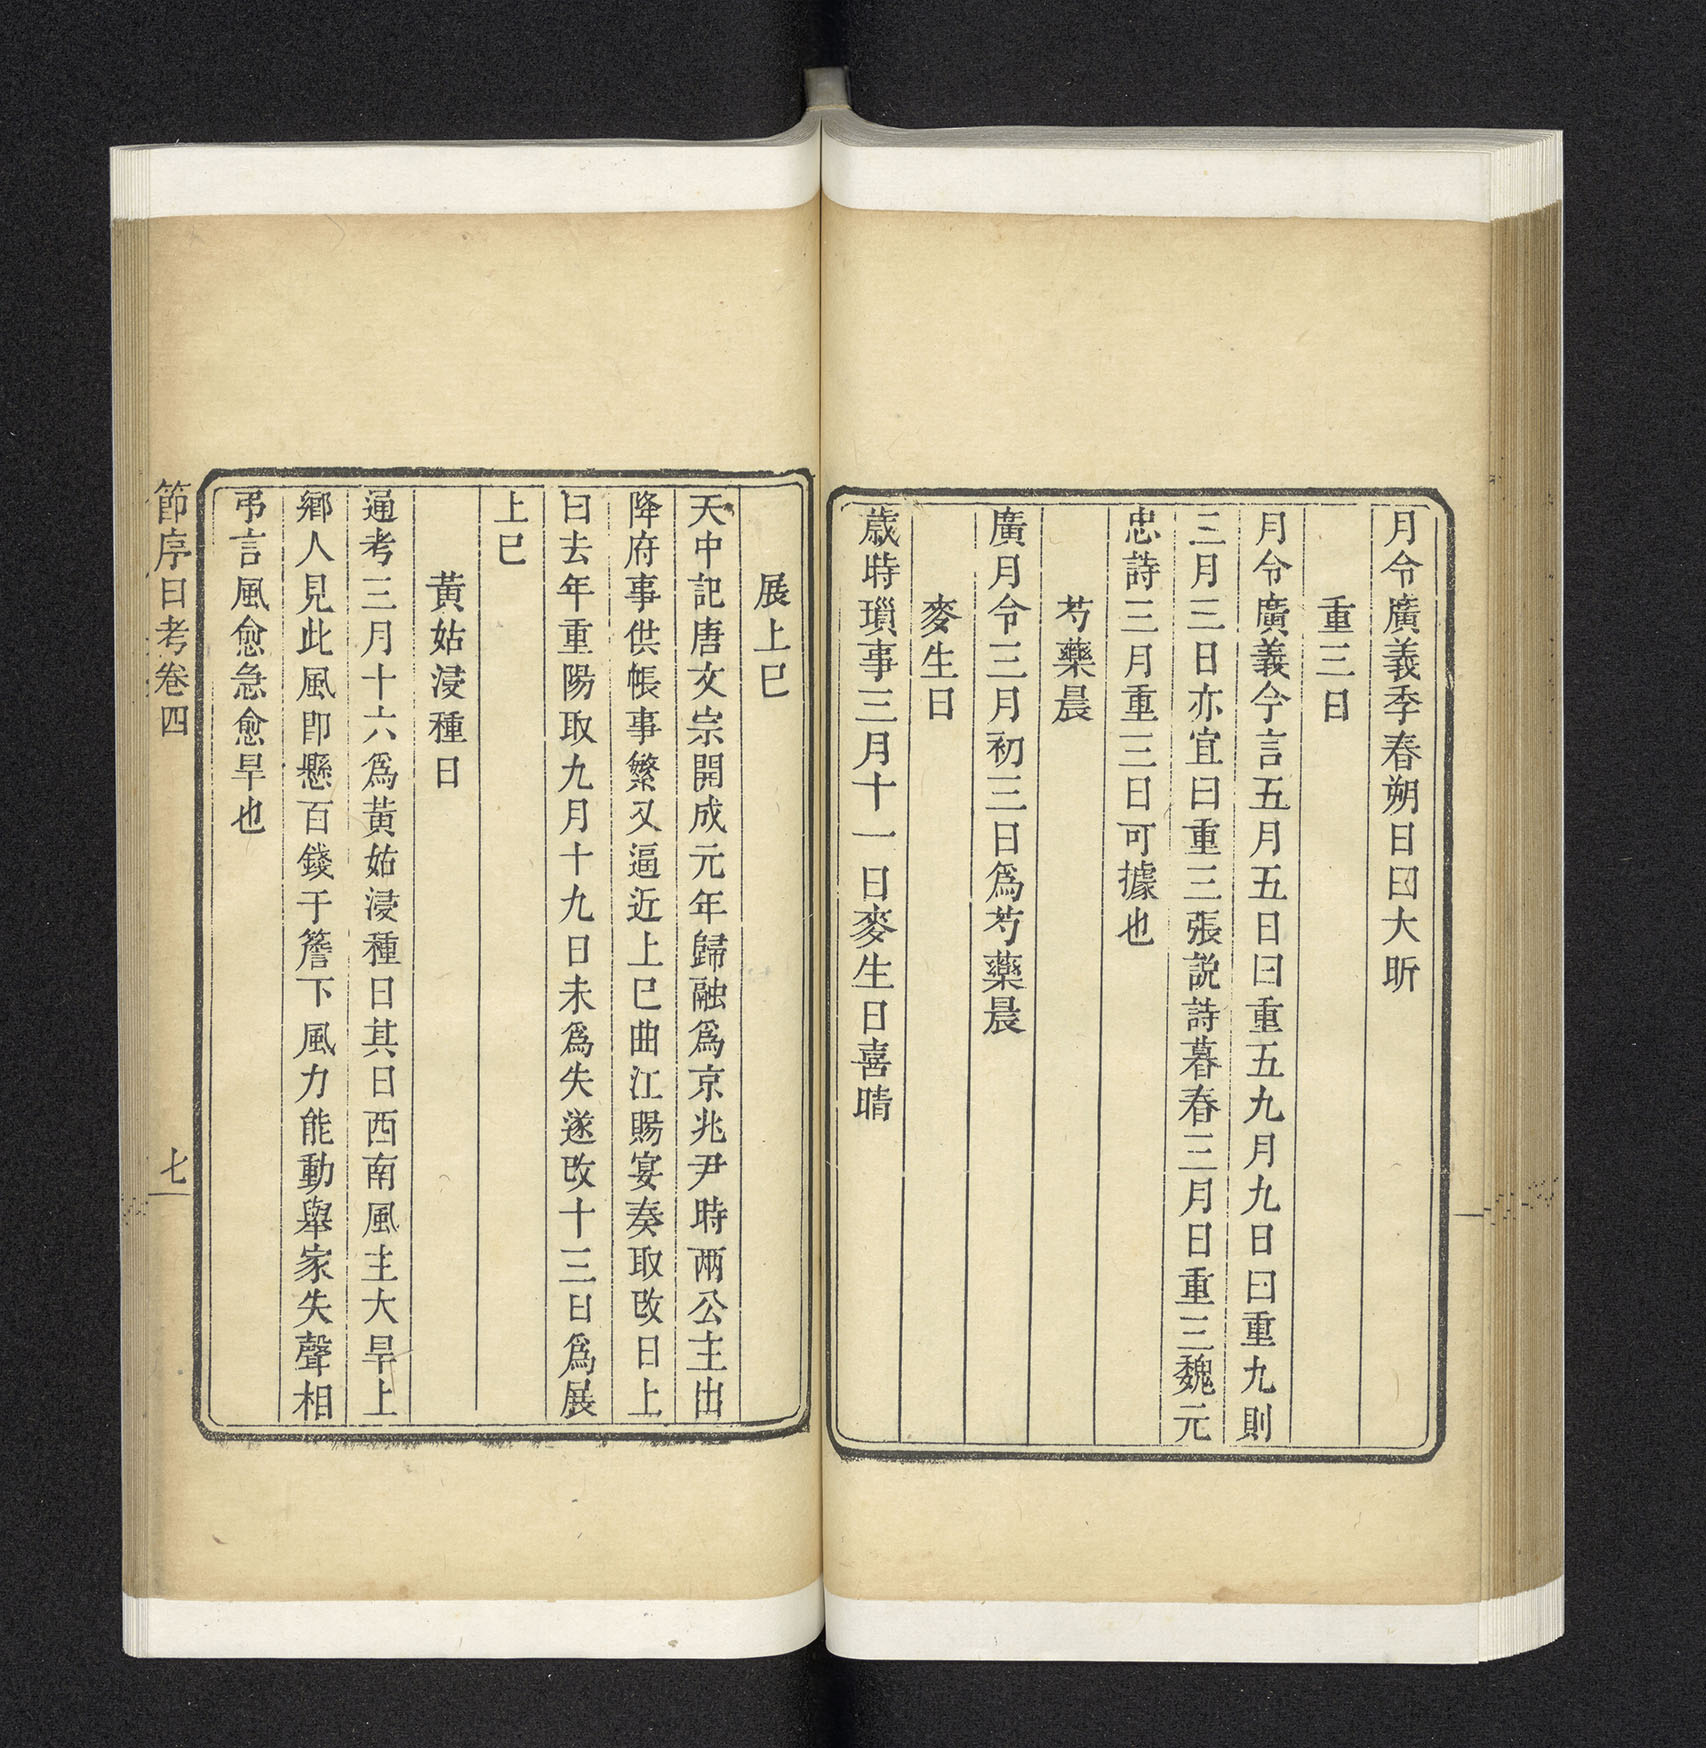 月令廣義季春朔日曰大昕
重三日
月令廣義今言五月五日曰重五九月九日曰重九則
三月三日亦宜曰重三張説詩暮春三月日重三魏元
忠詩三月重三日可據也
芍藥晨
廣月令三月初三日爲芍藥晨
麥生日
歳時瑣事三月十一日麥生日喜晴
展上巳
天中記唐文宗開成元年歸融爲京兆尹時兩公主出
降府事供帳事繁又逼近上巳曲江賜宴奏取改日上
曰去年重陽取九月十九日未爲失遂改十三日爲展
上巳
黃姑浸種日
通考三月十六爲黃姑浸種日其日西南風主大旱上
鄉人見此風即懸百錢于簷下風力能動舉家失聲相
弔言風愈急愈旱也
節序日考卷四
七